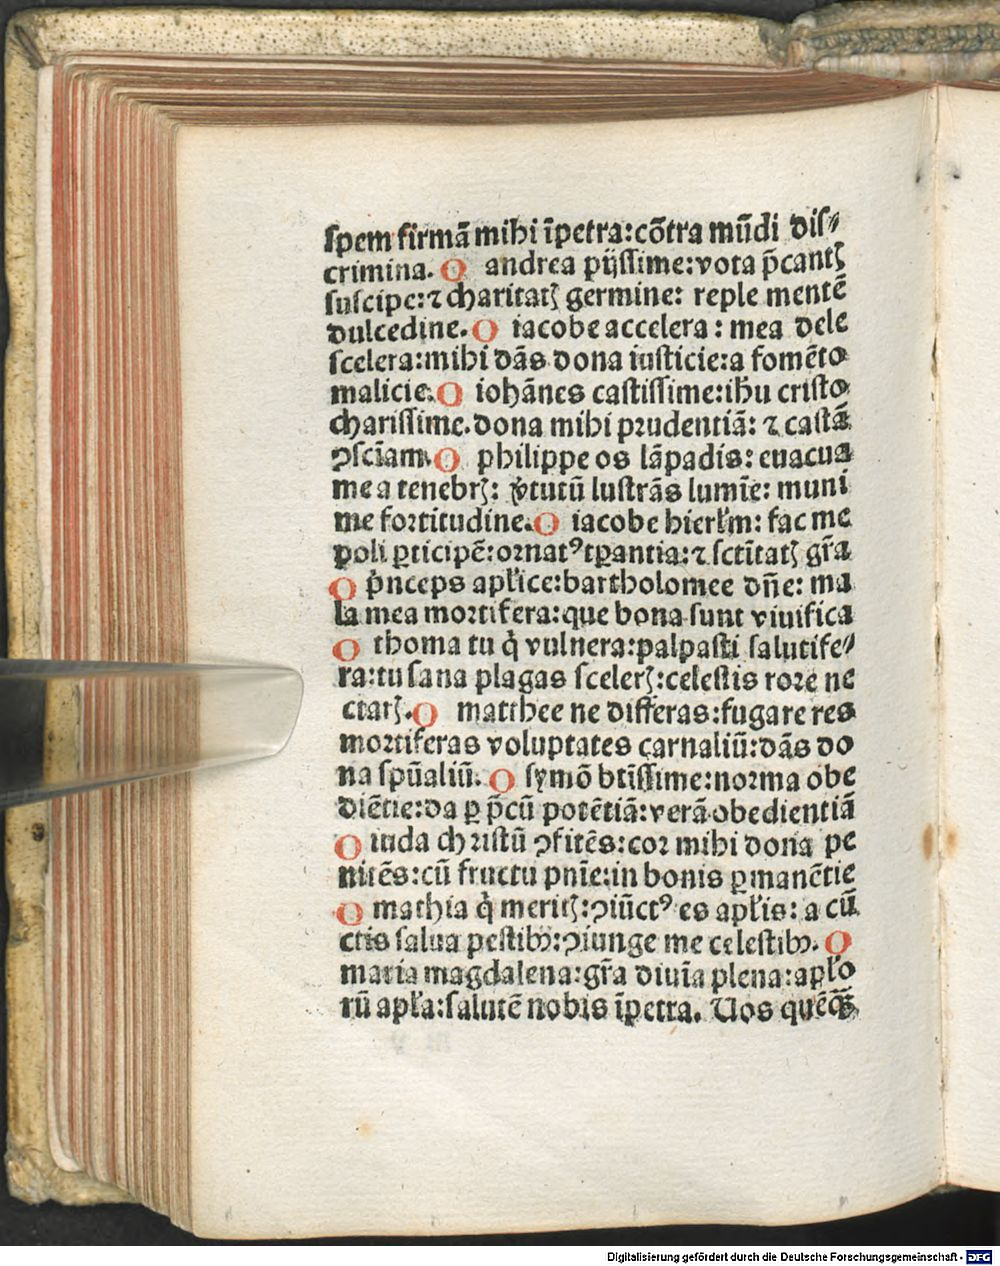 spem firmā mihi īpetra:cōtra mūdi diſ⸗
crimina. O andrea pijſſime:vota p̄cantꝭ
ſuſcipe:⁊ charitatꝭ germine: reple mentē
dulcedine. O iacobe accelera: mea dele
ſcelera:mihi dās dona iuſticie:a fomēto
malicie. O iohānes caſtiſſime:ihu̅ criſto
chariſſime. dona mihi prudentiā: ⁊ caſtā
ꝯſciam. O philippe os lāpadis: euacua
me a tenebrꝭ: v̓tutū luſtrās lumīe: muni
me fortitudine. O iacobe hierl̓m: fac me
poli ꝑticipē:ornatꝰ tꝑantia:⁊ ſctītatꝭ gr̄a
O p̓nceps apl̓ice:bartholomee dn̄e: ma
la mea mortifera:que bona ſunt viuifica
O thoma tu q̓ vulnera:palpaſti ſalutife⸗
ra:tu ſana plagas ſcelerꝭ:celeſtis rore ne
ctarꝭ. O matthee ne differas:fugare res
mortiferas voluptates carnaliū:dās do
na ſpūaliū. O ſymō btīſſime:norma obe
diētie:da ꝑ p̄cū potētiā:verā obedientiā
O iuda chriſtū ꝯfitēs:cor mihi dona pe
nitēs:cū fructu pnīe:in bonis ꝑmanētie
O mathia q̓ meritꝭ:ꝯiūctꝰ es apl̓is: a cū
ctis ſalua peſtibꝫ:ꝯiunge me celeſtibꝫ. O
maria magdalena:gr̄a diuīa plena:apl̓o
rū apl̓a:ſalutē nobis īpetra. Vos quēqꝫ
Digitalisierung gefördert durch die Deutsche Forschungsgemeinschaft - DFG